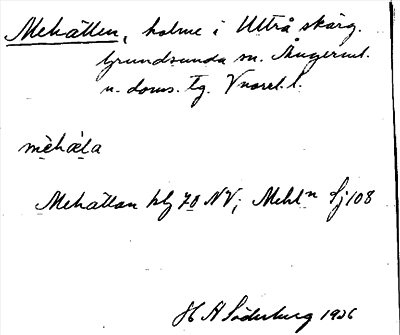 Mehällan, holme i Ultrå skärg.
Grundsunda sn. Ångerml.
n. doms. tg. Vnorrl. l.
mèhæla
Mehällan kbl 70 NV; Mehlⁿ Sj 108
H A Söderberg 1926